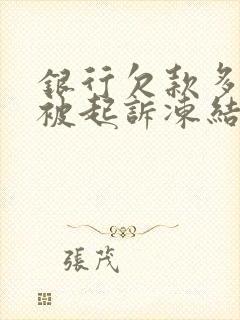 銀行欠款多
被起訴凍結
張茂